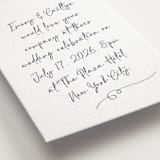 Emory & Caitlyn
would love your
company at their
wedding celebration on
July 17, 2026, 5pm
at The Plaza Hotel
New York City